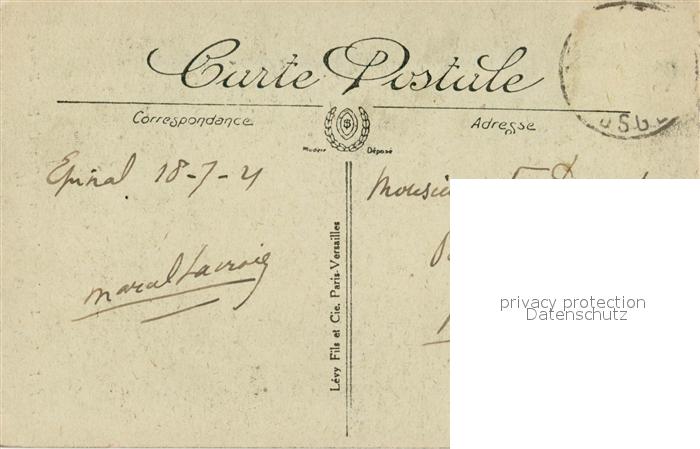 Carte Postale
Correspondance
Adresse
Modèle Déposé
Epinal 18-7-21
Marcel Lacroix
Lévy Fils et Cie. Paris-Versailles
privacy protection
Datenschutz